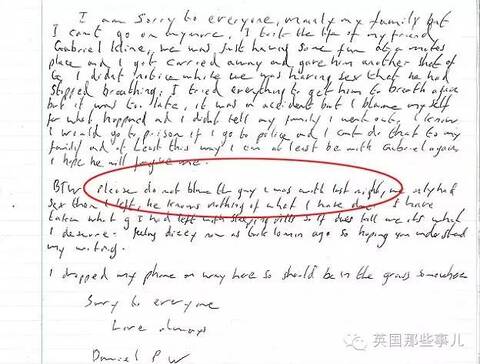 I am sorry to everyone, mainly my family but
I can't go on anymore, I took the life of my friend
Gabriel Kline, we was just having some fun at a mates
place and I got carried away and gave him another shot of
G I didn't notice while we was having sex that he had
stopped breathing. I tried everything to get him to breath again
but it was too late, it was an accident but I blame myself
for what happened and I didn't tell my family I went out. I know
I would go to prison if I go to police and I can't do that to my
family and at least this way I can at least be with Gabriel again
I hope he will forgive me.
BTW Please do not blame the guy I was with last night, we only had
sex then I left, he knows nothing of what I have done. I have
taken what g I had left with sleeping pills so if it does kill me it's what
I deserve. Feeling dizzy now as took 10 min ago so hoping you understand
my writing.
I dropped my phone on way here so should be in the grass somewhere
Sorry to everyone
Love always
Daniel P W
英国那些事儿